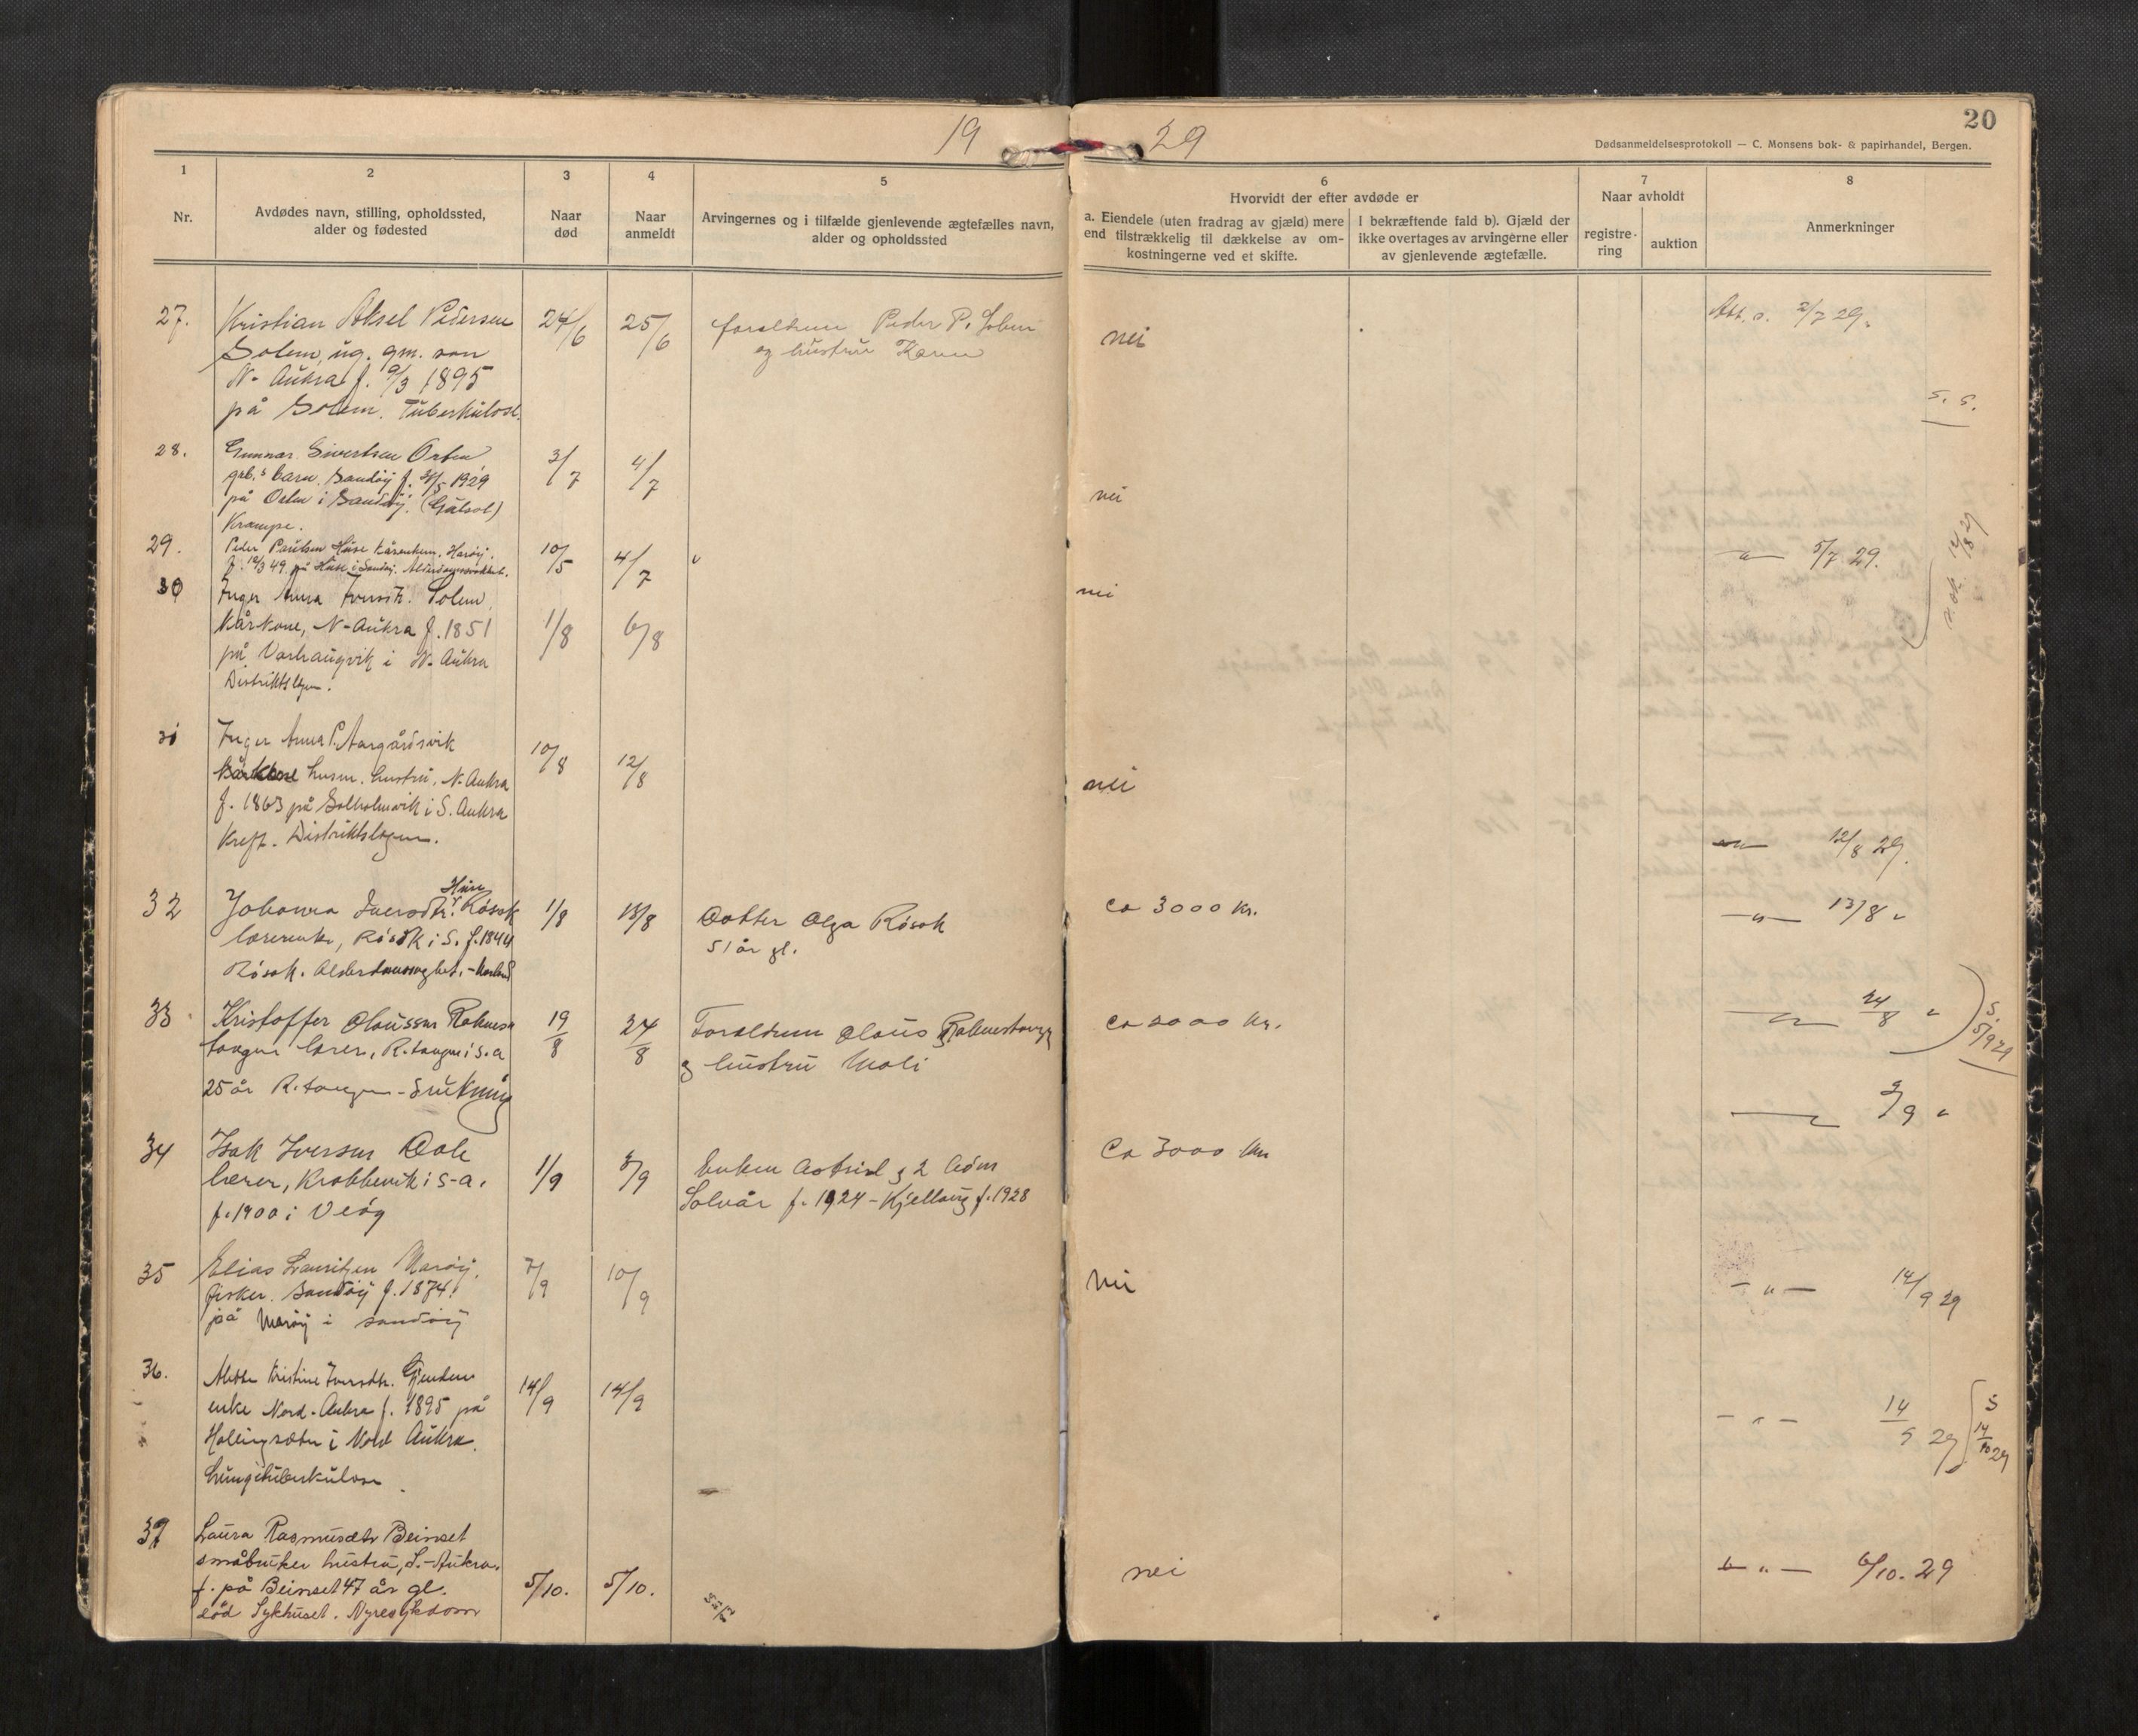 19 29
20
Dødsanmeldelsesprotokoll — C. Monsens bok- & papirhandel, Bergen.
1 2 3 4 5 6 7 8
Nr.
Avdødes navn, stilling, opholdssted,
alder og fødested
Naar
død
Naar
anmeldt
Arvingernes og i tilfælde gjenlevende ægtefælles navn,
alder og opholdssted
Hvorvidt der efter avdøde er
a. Eiendele (uten fradrag av gjæld) mere
end tilstrækkelig til dækkelse av om-
kostningerne ved et skifte.
I bekræftende fald b). Gjæld der
ikke overtages av arvingerne eller
av gjenlevende ægtefælle.
Naar avholdt
registre-
ring
auktion
Anmerkninger
27. Kristian Aksel Pedersen 24/6 25/6 foreldrene Peder P. Solem nei 2/7 29.
Solem, ug. gm. søn og hustru
N- Aukra f. 9/3 1895
på Solem. Tuberkulose. S. S.
28. Gunnar Sivertsen Orten 3/7 4/7 nei
grb.s barn. Sandøy f. 1929
på Orten i Sandøy. (Gulsot)
Krampe.
29. Peder Paulsen Huse kårenkem. Harøy. 10/5 4/7 " — " — 5/7 29.
f. 10/3 49. på Huse i Sandøy.
30 Inger Anna Iversdtr. Solem, nei
kårkone, N-Aukra f. 1851 1/8 6/8
på Varhaugvik i N. Aukra
Distriktslegen.
31 Inger Anna P. Aurgårdsvik 10/8 12/8 nei
husm. hustru, N. Aukra
f. 1863 på i S. Aukra
Kreft. Distriktslegen. — " — 12/8 29.
Huse
32 Johanna Iversdtr. Røsok 1/8 13/8 Datter Olga Røsok ca 3000 kr. — " — 13/8 "
lærerenke, Røsok i S. f. 1844 51 år gl.
Røsok.
33 Kristoffer Olaussen Raknes- 19/8 24/8 Foreldrene Olaus Raknestangen kr. 24/8 "
tangen lærer, R.tangen i S.a og hustru Mali S. 5/9 29
25 år R.tangen - Drukning 9/9 "
34 Isak Iversen Dale 1/9 9/9 Enken Astrid og 2 børn Ca 3000 kr
lærer, Krabbevik i S-a. Solvår f. 1924 - Kjellaug f. 1928
f. 1900 i Veøy
35 Elias Lauritzen Harøy. 7/9 10/9 Nei — " — 14/9 29
fisker. Sandøy f. 1874.
på Harøy i Sandøy
36. Mette Kristine Iversdtr. Gjendem 14/9 14/9 — " — 14/9 29 S 14/10 29
enke Nord-Aukra f. 1895 på
Hollingsæter i Nord Aukra.
Lungetuberkulose
37 Laura Rasmusdtr Beinset
småbruker hustru, S.-Aukra.
f. på Beinset 47 år gl. 5/10. 5/10. nei — " — 6/10. 29
død Sykhuset. Nyresykdom